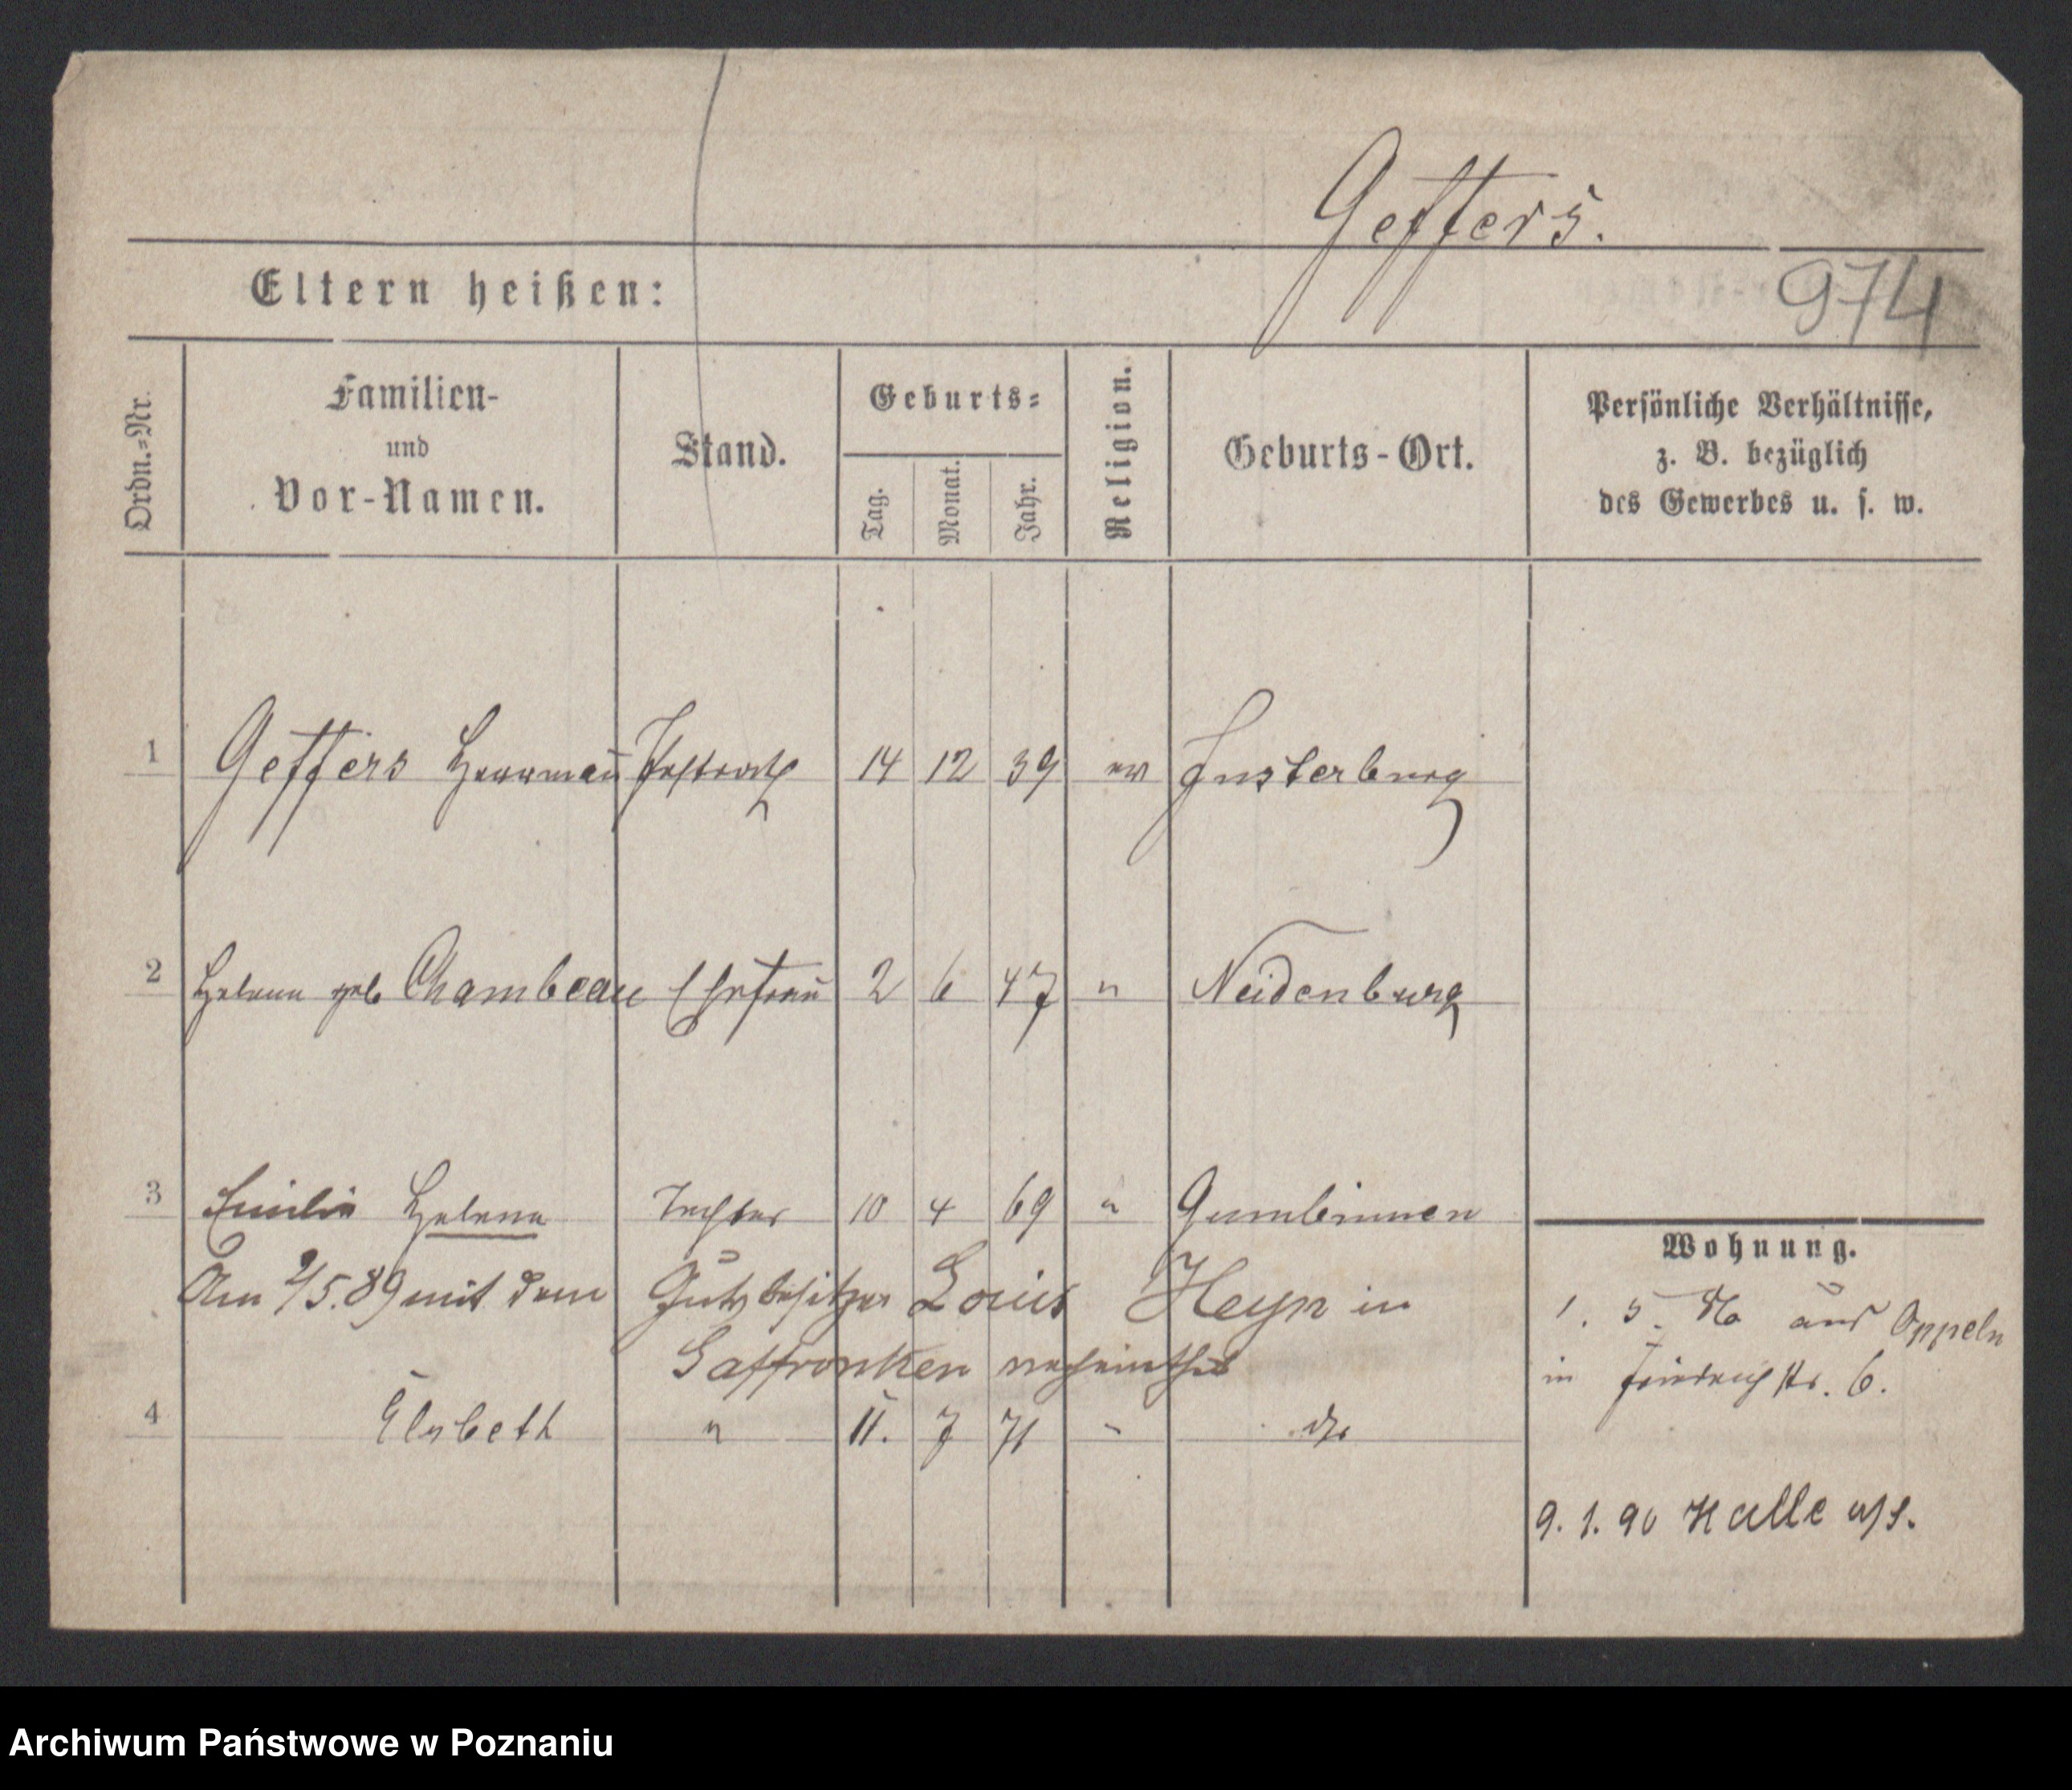 Geffers.
974
Eltern heißen:
Ordn.=Nr.
Familien-
und
Vor-Namen.
Stand.
Geburts=
Tag.
Monat.
Jahr.
Religion.
Geburts-Ort.
Persönliche Verhältnisse,
z. B. bezüglich
des Gewerbes u. s. w.
1 Geffers Herrmañ 14 12 39 ev Insterburg
2 Helene geb Chambeau Ehefrau 2 6 47 " Neidenburg
3 Emilie Helene Tochter 10 4 69 " Gumbinnen
Am 2/5.89 mit dem Gutsbesitzer Louis Heyn in
Saffronken verheirathet
4 Elsbeth " 11. 7 71 " do
Wohnung.
1. 5. 86 aus Oppeln
in Friedrichstr. 6.
9. 1. 90 Halle a/S.
Archiwum Państwowe w Poznaniu